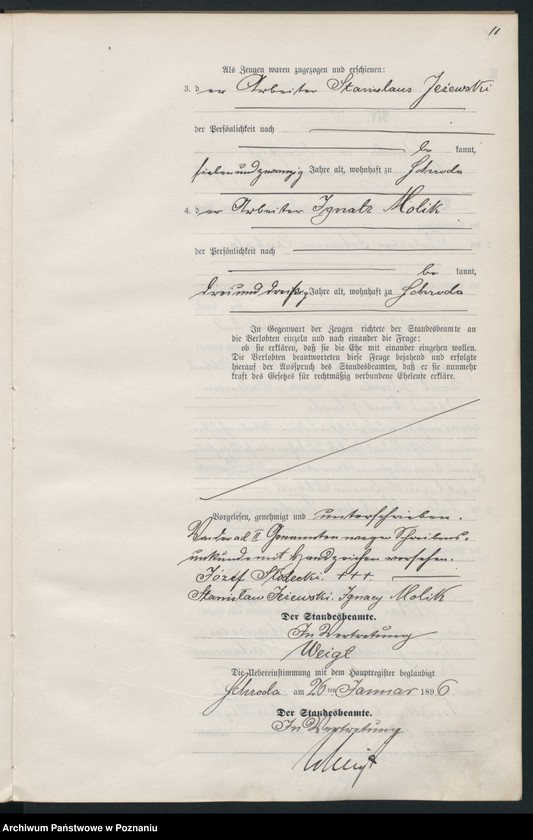 11
Als Zeugen waren zugezogen und erschienen:
3. der Arbeiter Stanislaus Jeżewski
der Persönlichkeit nach
be kannt,
siebenundzwanzig Jahre alt, wohnhaft zu Schroda
4. der Arbeiter Ignatz Molik
der Persönlichkeit nach
be kannt,
dreiunddreißig Jahre alt, wohnhaft zu Schroda
In Gegenwart der Zeugen richtete der Standesbeamte an
die Verlobten einzeln und nach einander die Frage:
ob sie erklären, daß sie die Ehe mit einander eingehen wollen.
Die Verlobten beantworteten diese Frage bejahend und erfolgte
hierauf der Ausspruch des Standesbeamten, daß er sie nunmehr
kraft des Gesetzes für rechtmäßig verbundene Eheleute erkläre.
Vorgelesen, genehmigt und unterschrieben.
Von der ad II Genannten wegen Schreibens-
unkunde mit Handzeichen versehen.
Józef +++.
Stanisław Jeżewski. Ignacy Molik
Der Standesbeamte.
In Vertretung
Weigt
Die Uebereinstimmung mit dem Hauptregister beglaubigt
Schroda am 26ten Januar 1896
Der Standesbeamte.
In Vertretung
Weigt
Archiwum Państwowe w Poznaniu